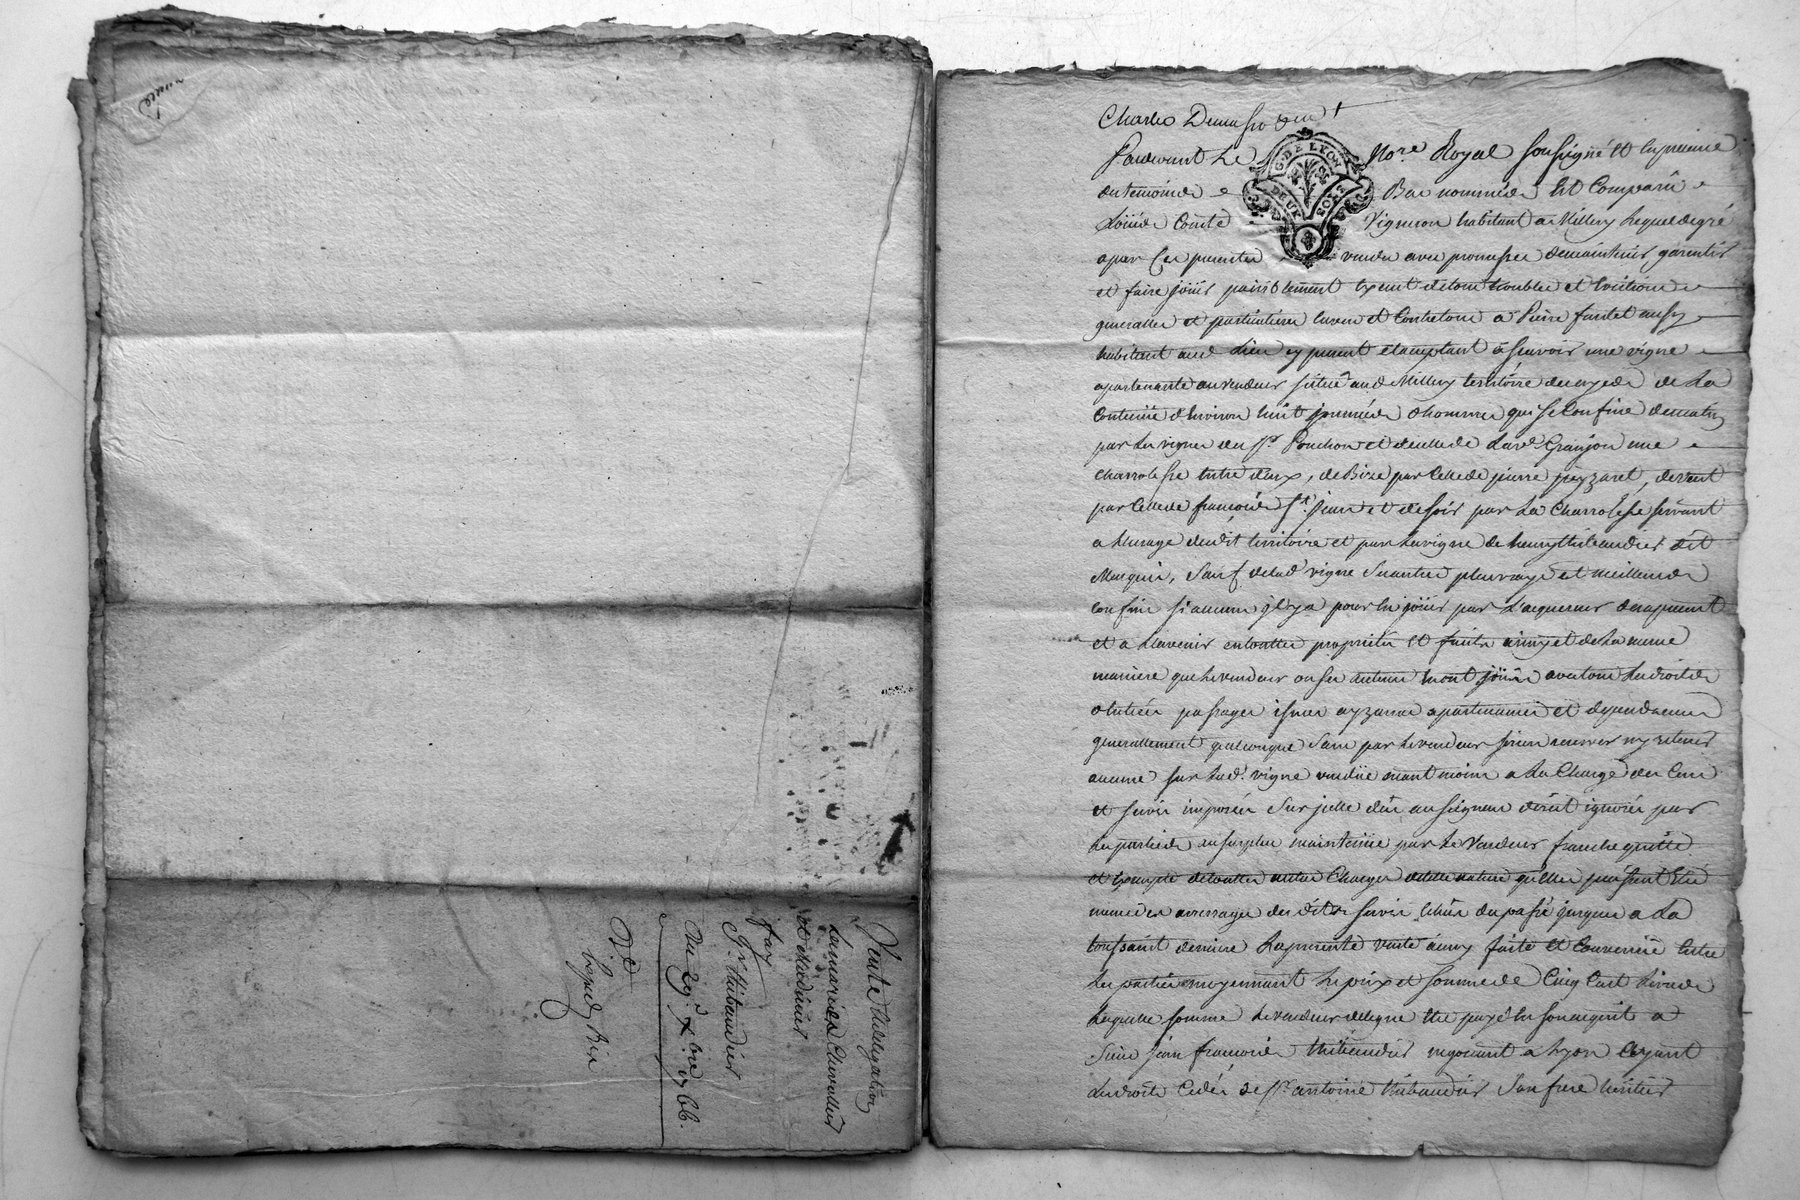 Vente & delegation
la mariée Chevallier
et Madinier
fay
Jn. Thibaudier
Du 29e. Xbre 1766.
Charles
Pardevant Le Nore. Royal soussigné et en presence
des temoins Bas nommés est Comparu
Loüis Comte Vigneron habitant a Millery lequel de gré
a par Ces presentes vendu avec promesse de maintenir, garentir
et faire joüir paisiblement exempt de tous troubles et evictions
generalles et particulieres envers et Contre tous a Pierre aussy
habitant aud. Lieu cy present et acceptant àsçavoir une vigne
apartenante au vendeur située aud. Millery territoire de la
Contenüe d'Environ huit journées d'hommes qui se Confine de matin
par les vignes du Sr. Ponchon et de celle de la ve. Granjon une
charrolesse entre deux, de Bize par Celle de pierre de vent
par Celle de françois St. jean et de soir par La Charrolesse servant
a l'usage dudit territoire et par la vigne de henry thibeaudier dit
sauf de lad. vigne ses autres plus vrays et meilleurs
confins si aucuns il y a pour en joüir par L'acquereur des a present
et a l'avenir en toutte proprieté et tout ainsy et de la meme
maniere que le vendeur ou ses auteurs en ont joüi avec tous les droits
d'entrées passages issues ayzances apartenances et dependances
generallement quelconque sans par le vendeur s'en reserver ny retenir
aucune sur lad. vigne vendüe neant moins a La Charge des Cens
et servis imposés sur jcelle dûs au seigneur direct ignorés par
les parties au surplus maintenüe par le Vendeur franche quitte
et exempte de touttes autres Charges de telle nature qu'elles puissent etre
meme des arrerages desdits servis échus du passé jusques a La
toussaint derniere La presente vente ainsy faite et Convenüe entre
les parties moyennant le prix et somme de Cinq Cent Livres
laquelle somme le vendeur delegue etre payé en son acquit a
Sieur jean françois thibaudier negociant a Lyon ayant
les droits Cédés de Sr. antoine thibaudier son frere heritier